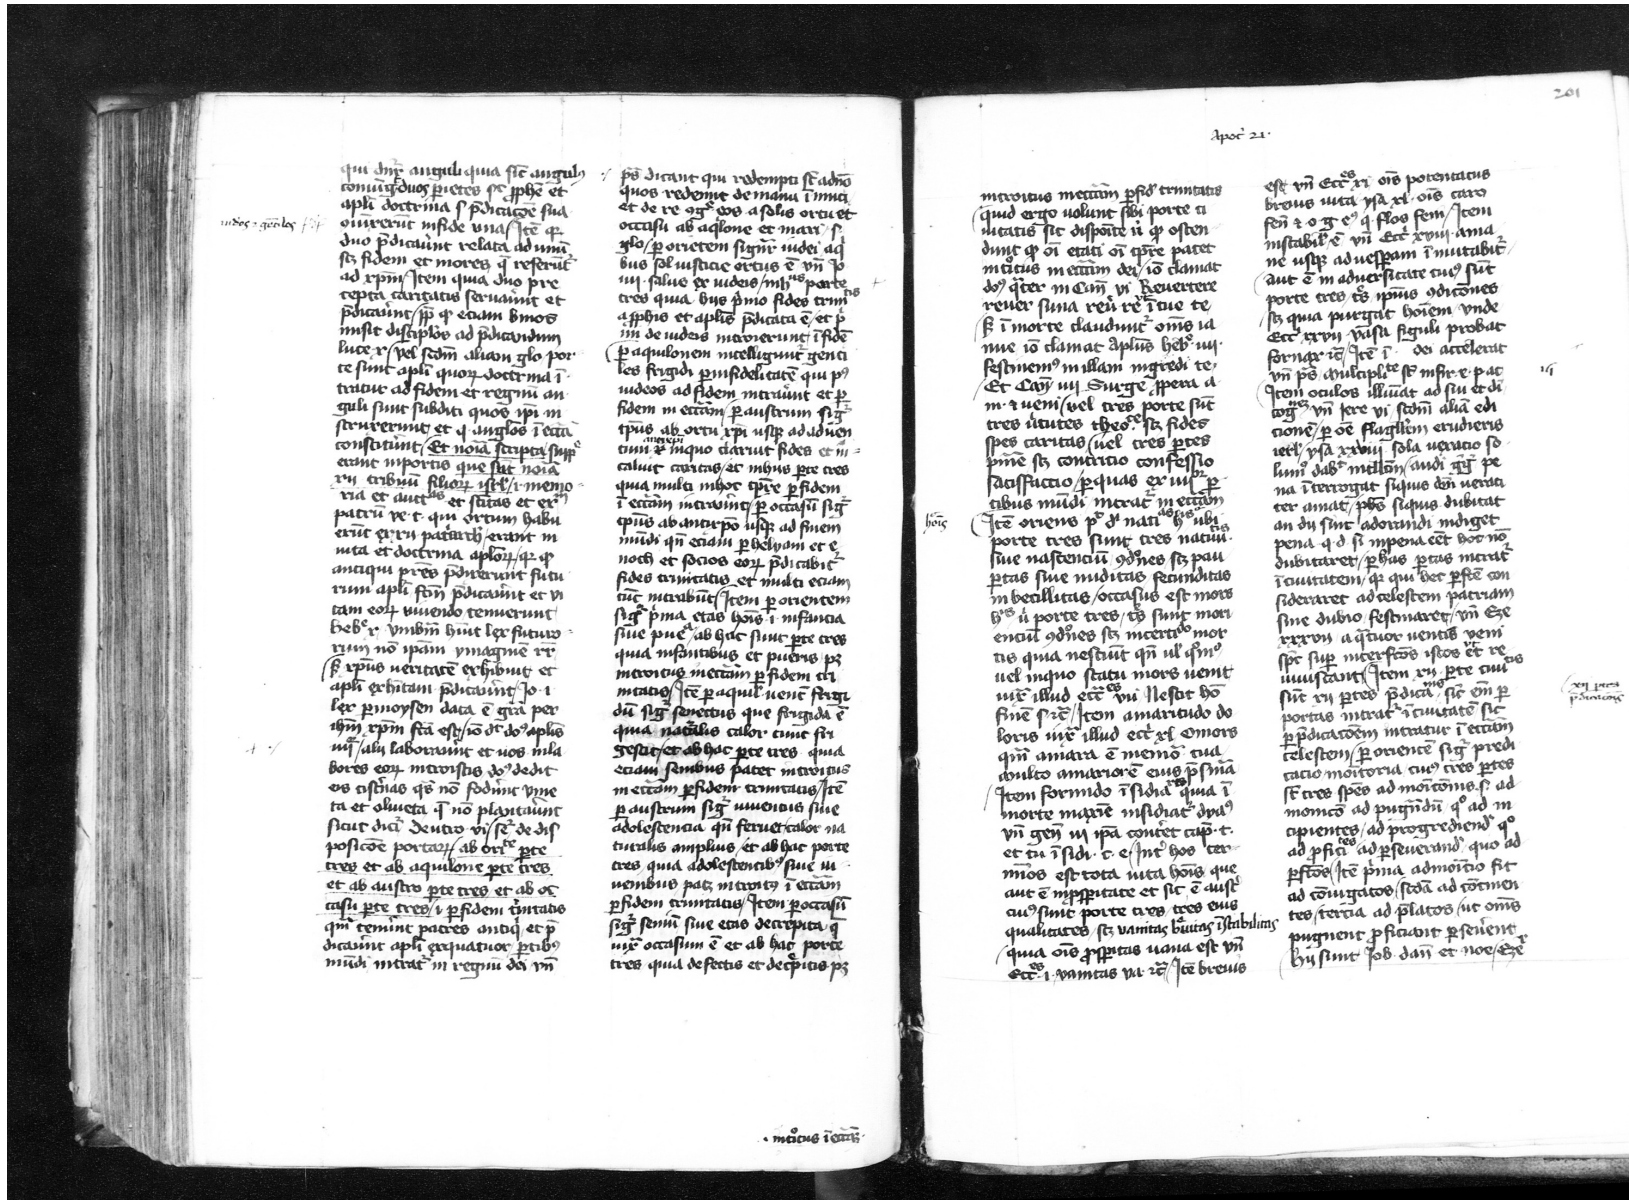 qui dnr̄ anguli quia sic̄ angulꝰ
coniūgit duos pietes sic ꝓphē et
apłi doctrina s p̄dicacōe sua
ꝯiūxerūt in fide una Itē qꝛ
duo p̄dicauūt relata ad unū
scꝫ fidem et mores q̄ referūtᷣ
ad xpm̄ Item quia duo pre
cepta caritatis seruauūt et
p̄dicauūt ꝓp̄ qđ eciam binos
misit discipłos ad p̄dicandum
luce x vel scdm̄ aliam glo por
te sunt apłi quoꝝ doctrina ī
tratur ad fidem et regnū an
guli sunt subditi quos ip̄i in
struxerunt et q anglos ī ecc̄ia
constituūt Et noīa scripta supᷣ
erant in portis que sūt noīa
xii tribuū filioꝝ isrł i memo
ria et auctas et scitas et exm
patrū ve t qui ortum habu
erūt ex xii patiarch erant in
uita et doctrina apłoꝝ qꝛ qđ
antiqui prēs p̄dixerunt futu
rum apłi fcm̄ p̄dicauūt et vi
tam eoꝝ viuendo tenuerunt
heb x vmbrā hn̄s lex futuro
rum nō ipam ymaginē rr̄
ꝗ xp̄us veritatē exhibuit et
apłi exhitam p̄dicauūt Jo i
lex p moysen data ē gra per
ihm̄ xpm̄ fc̄a est io dt doꝰ apłis
iiij alij laborauūt et uos in la
bores eoꝝ introistis doꝰ dedit
eis cistnas q̄s nō foderūt vine
ta et oliueta q̄ nō plantauūt
sicut dicit Deutro vi Seqr de dis
posicōe portaꝝ ab orite pte
tres et ab aquilone pte tres
et ab austro pte tres et ab oc
casu pte tres i p fidem tinitatis
qm̄ tenuerūt patres antiq et p̄
dicauūt apłi ex quatuor ptibꝰ
mūdi intratᷣ in regnū dei vn̄
iudeos ⁊ gentiles
p̄s dicant qui redempti st a dno
quos redemit de manu inimici
et de re ꝯgr̄ eos a solis ortu et
occasu ab aqlone et mari s
glo p orientem signr̄ iudei a q
bus sol iusticie ortus ē vn̄ Jo
iiii salus ex iudeis in hiis porte
tres quia hiis pmo fides trinitatis
a ꝓphis et aplis p̄dicata ē et p
im̄ de iudeis introierunt ī fidē
p aquilonem intelligunt genti
les frigidi p infidelitatē qui pꝰ
iudeos ad fidem intrauūt et p
fidem in ecc̄iam p austrum sigr̄
tpus ab ortu xpi usqꝫ ad aduen
tum antexpi in quo claruit fides et in
caluit caritas et in hiis pte tres
quia multi in hoc tpre p fidem
ī ecc̄iam intrauūt p occasū sigr̄
tpus ab antixpo usqꝫ ad finem
mūdi qn̄ eciam p helyam et e
noch et socios eoꝝ p̄dicabitᷣ
fides trinitatis et multi eciam
tūc intrabūt Item p orientem
sigr̄ p̄ma etas hois i infancia
siue pueᵃ ab hac sunt pte tres
quia infantibus et pueris pꝫ
introitus in ecc̄iam p fidem tri
nitatis Itē p aquil vent frigi
dū sigr̄ senectus que frigida ē
quia natalis calor tunc fri
gescit et ab hac pte tres quia
eciam senibus patet introitus
in ecc̄iam p fidem trinitatis Itē
p austrum sigr̄ iuuentus siue
adolestencia qn̄ feruet calor na
turalis amplius et ab hac porte
tres quia adolestentibꝰ siue iu
uenibus patꝫ introitꝰ ī ecc̄iam
p fidem trinitatis Item p occasū
sigr̄ seniū siue etas decrepita q̄
iuxᵗ occasum ē et ab hac porte
tres quia defectis et decrepitis pꝫ
introitus ī ecc̄iaꝫ
201
Apoc 21
introitus in ecc̄iam p fid trinitatis
Quid ergo uolunt sibi porte ci
uitatis sic disposite n qđ osten
dunt qđ oī etati oī tpre patet
introitus in ecc̄iam dei io clamat
doꝰ qter in Can vi Revertere
reuer suna reu rer ī tue te
ꝗ ī morte claudunt oms ia
nue io clamat Apłus heb iiij
festinemꝰ in illam ingredi te
Et Can iiij Surge ꝓpera a
m ⁊ veni vel tres porte sūt
tres uirtutes theoce scꝫ fides
spes caritas vel tres ptes
pnīe scꝫ contricio confessio
satisfactio p quas ex iiijbr p
tibus mūdi intratᷣ in ecc̄iam
Itē oriens
hois
porte tres sunt tres natiui
siue nascenciū ꝯdicōnes scꝫ pau
ptas siue nuditas fecunditas
inbecillitas occasus est mors
hꝰ porte tres sunt mori
enciū ꝯdicōnes scꝫ incertitudo mor
tis quia nesciūt qn̄ vl qmō
vel in quo statu mors uenit
iuxᵗ illud ecc̄es viii Nescit ho
finē s rc̄ Item amaritudo do
loris iuxᵗ illud ecc̄i xl O mors
qm̄ amara ē memoria tua
multo amariorē eius p̄sencia
Item formido insidiarꝝ quia ī
morte maxīe insidiatᷣ dyaꝰ
vn̄ gen̄ iii ipa conteret cap t
et tu īsidi c e Int hos ter
minos est tota uita hois que
aut ē in ꝓspitate et sic ē austr̄
cuiꝰ sunt porte tres tres eius
qualitates scꝫ vanitas breuitas īstabilitas
quia ois ꝓspitas uana est vn̄
Ecc̄es i vanitas va rc̄ Itē breuis
est vn̄ Ecc̄es xi ois potentatus
breuis uita ysa xl ois caro
fen ⁊ o g eꝰ q flos feni Item
instabil ē vn̄ Ecc̄i xviii a ma
ne usqꝫ ad uesperam īmutabitᷣ
Aut ē in aduersitate cuiꝰ sūt
porte tres ts ipius ꝯdicōnes
scꝫ quia purgat hoiem vnde
Ecc̄i xxvii vasa figuli probat
fornax ic̄ Itē ī dei accelerat
vn̄ p̄s Multiplite st infir e p ac
Item oculos illuiat ad sui et di
cognez vn̄ Jere vi scdm̄ aliā edi
cionē p oē flagllm erudieris
ierl ysa xxviii sola vexatio so
lumo dabit intllcm audi gg pe
na īterrogat si quis dm̄ veraci
ter amat p̄s si quis dubitat
an dn̄ sint adorandi indiget
pena q d si in pena eēt hoc nō
dubitaret p has portas intratᷣ
ī ciuitatem qꝛ qui hec pfcē con
sideraret ad celestem patriam
sine dubio festinaret vn̄ Eze
xxxvii a qtuor ventis veni
spc sup interfcos istos et re
uiuiscant Item xii porte ciuitis
sūt xii ptes p̄dicanis sic̄ eni p
portas intratᷣ ī ciuitatē sic
p p̄dicatōem intratur ī ecc̄iam
celestem p orientē sigr̄ predi
catio monitoria cuiꝰ tres ptes
st tres spēs ad monicōnis s ad
monicō ad pugnādū qo ad in
cipientes ad progrediend qo
ad proficies ad pseuerand quo ad
pfcos Itē p̄ma admonitio fit
ad coniugatos scda ad cōtinen
tes tercia ad platos ut oms
pugnent proficiant pseuerent
hii sunt Job dan et noe Eze
xii ptes
p̄dicacionis